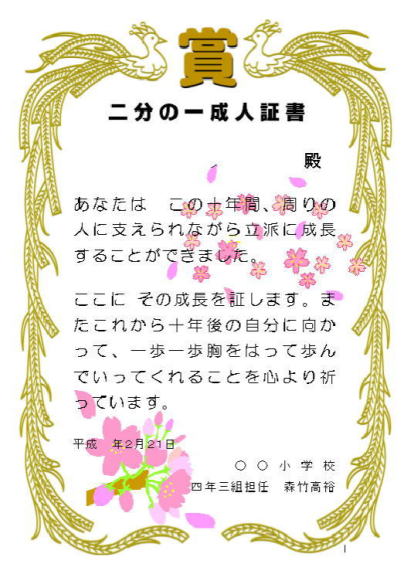 賞
二分の一成人証書
殿
あなたは　この十年間、周りの
人に支えられながら立派に成長
することができました。
ここに その成長を証します。ま
たこれから十年後の自分に向か
って、一歩一歩胸をはって歩ん
でいってくれることを心より祈
っています。
平成　年2月21日
○ ○ 小 学 校
四年三組担任　森竹高裕